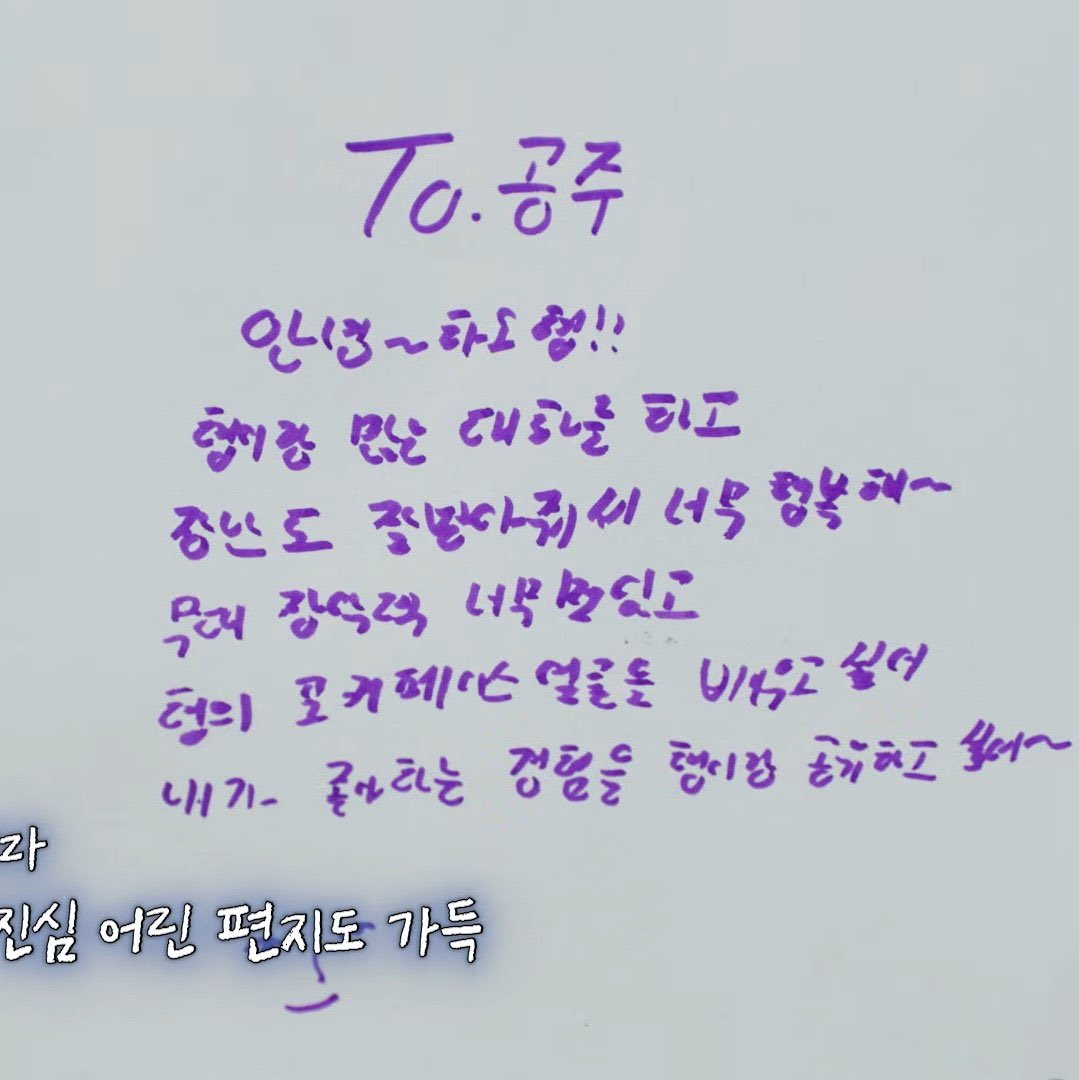 To. 공주
안녕~하도형!!
형이랑 많은 대화를 하고
장난도 잘받아줘서 너무 행복해~
무대 장악력 너무 멋있고
형의 포커페이스 얼굴을 배우고 싶어
내가 좋아하는 경험을 형이랑 공유하고 싶어~
라
진심 어린 편지도 가득